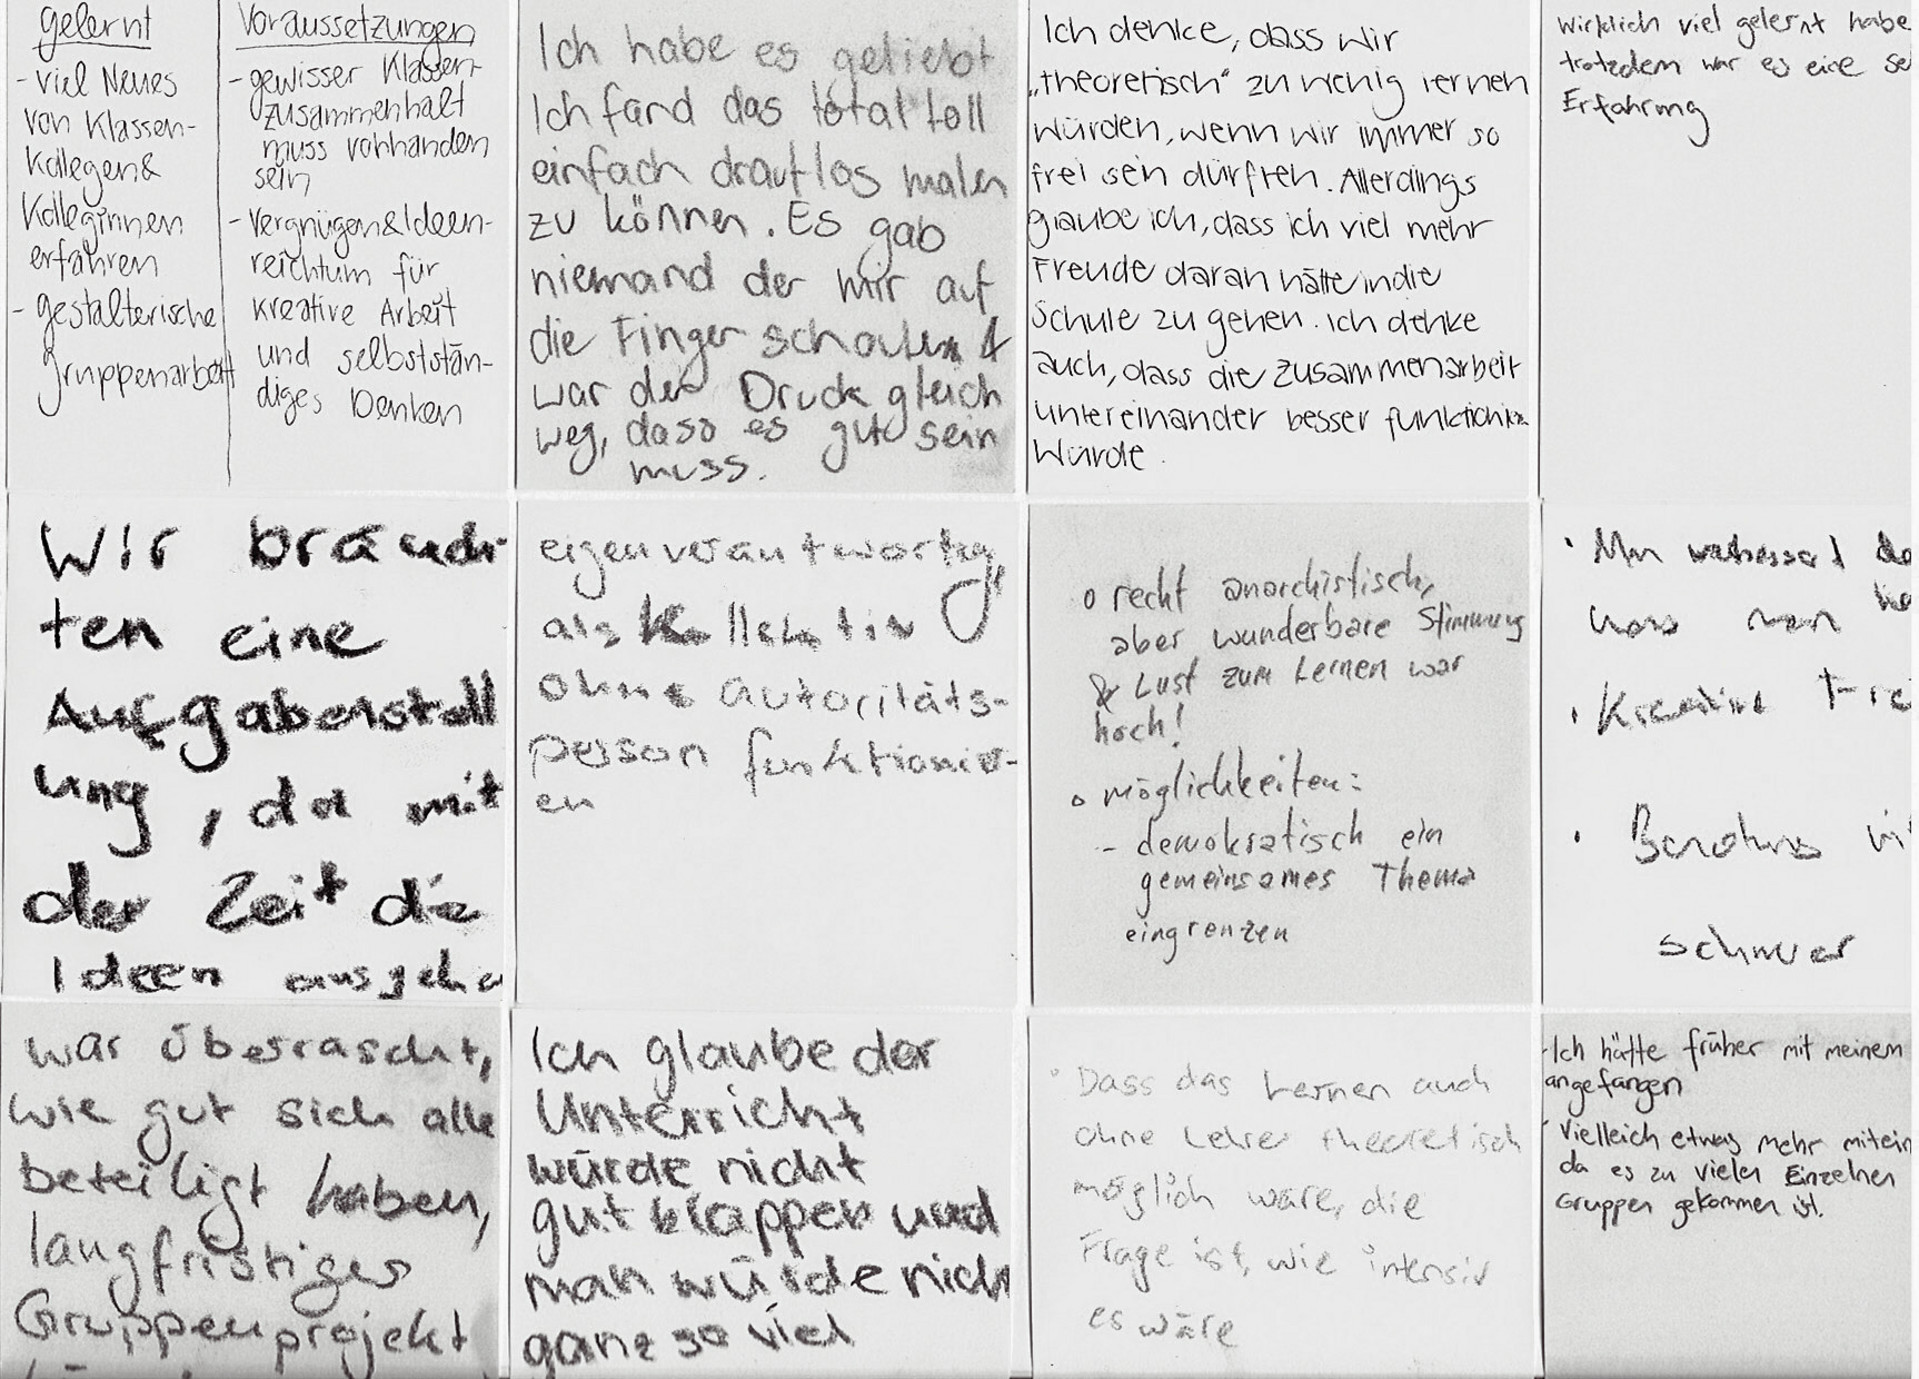 gelernt
- viel Neues
von Klassen-
kollegen &
Kolleginnen
erfahren
- gestalterische
Gruppenarbeit
Voraussetzungen
- gewisser Klassen-
zusammenhalt
muss vohhanden
sein
- Vergnügen & Ideen-
reichtum für
kreative Arbeit
und selbststän-
diges Denken
Ich habe es geliebt
Ich fand das total toll
einfach drauf los malen
zu können. Es gab
niemand der mir auf
die Finger schauen &
war der Druck gleich
weg, dass es gut sein
muss.
Ich denke, dass wir
„theoretisch“ zu wenig lernen
würden, wenn wir immer so
frei sein dürften. Allerdings
glaube ich, dass ich viel mehr
Freude daran hätte in die
Schule zu gehen. Ich denke
auch, dass die Zusammenarbeit
untereinander besser
würde.
Wirklich viel gelernt habe
trotzdem war es eine
Erfahrung
Wir bräuch-
ten eine
Aufgabenstell
ung, da mit
der Zeit die
Ideen
eigenverantwortig,
als Kollektiv
ohne Autoritäts-
person funktionier-
en
o recht anarchistisch,
aber wunderbare Stimmung
& Lust zum Lernen war
hoch!
o möglichkeiten:
- demokratisch ein
gemeinsames Thema
eingrenzen
• Man
was man
• Kreative
•
schwer
war überrascht,
wie gut sich alle
beteiligt haben,
langfristiges
Gruppenprojekt
Ich glaube der
Unterricht
würde nicht
gut klappen und
man würde nich
ganz so viel
• Dass das Lernen auch
ohne Lehrer theoretisch
möglich wäre, die
Frage ist, wie intensiv
es wäre
- Ich hätte früher mit meinem
angefangen
- Vielleich etwas mehr mitein
da es zu vielen Einzelnen
Gruppen gekommen ist.